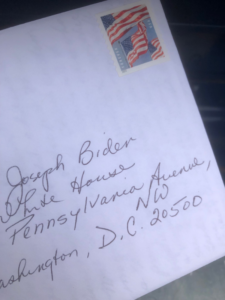 Joseph Biden
White House
Pennsylvania Avenue,
NW
Washington, D.C. 20500